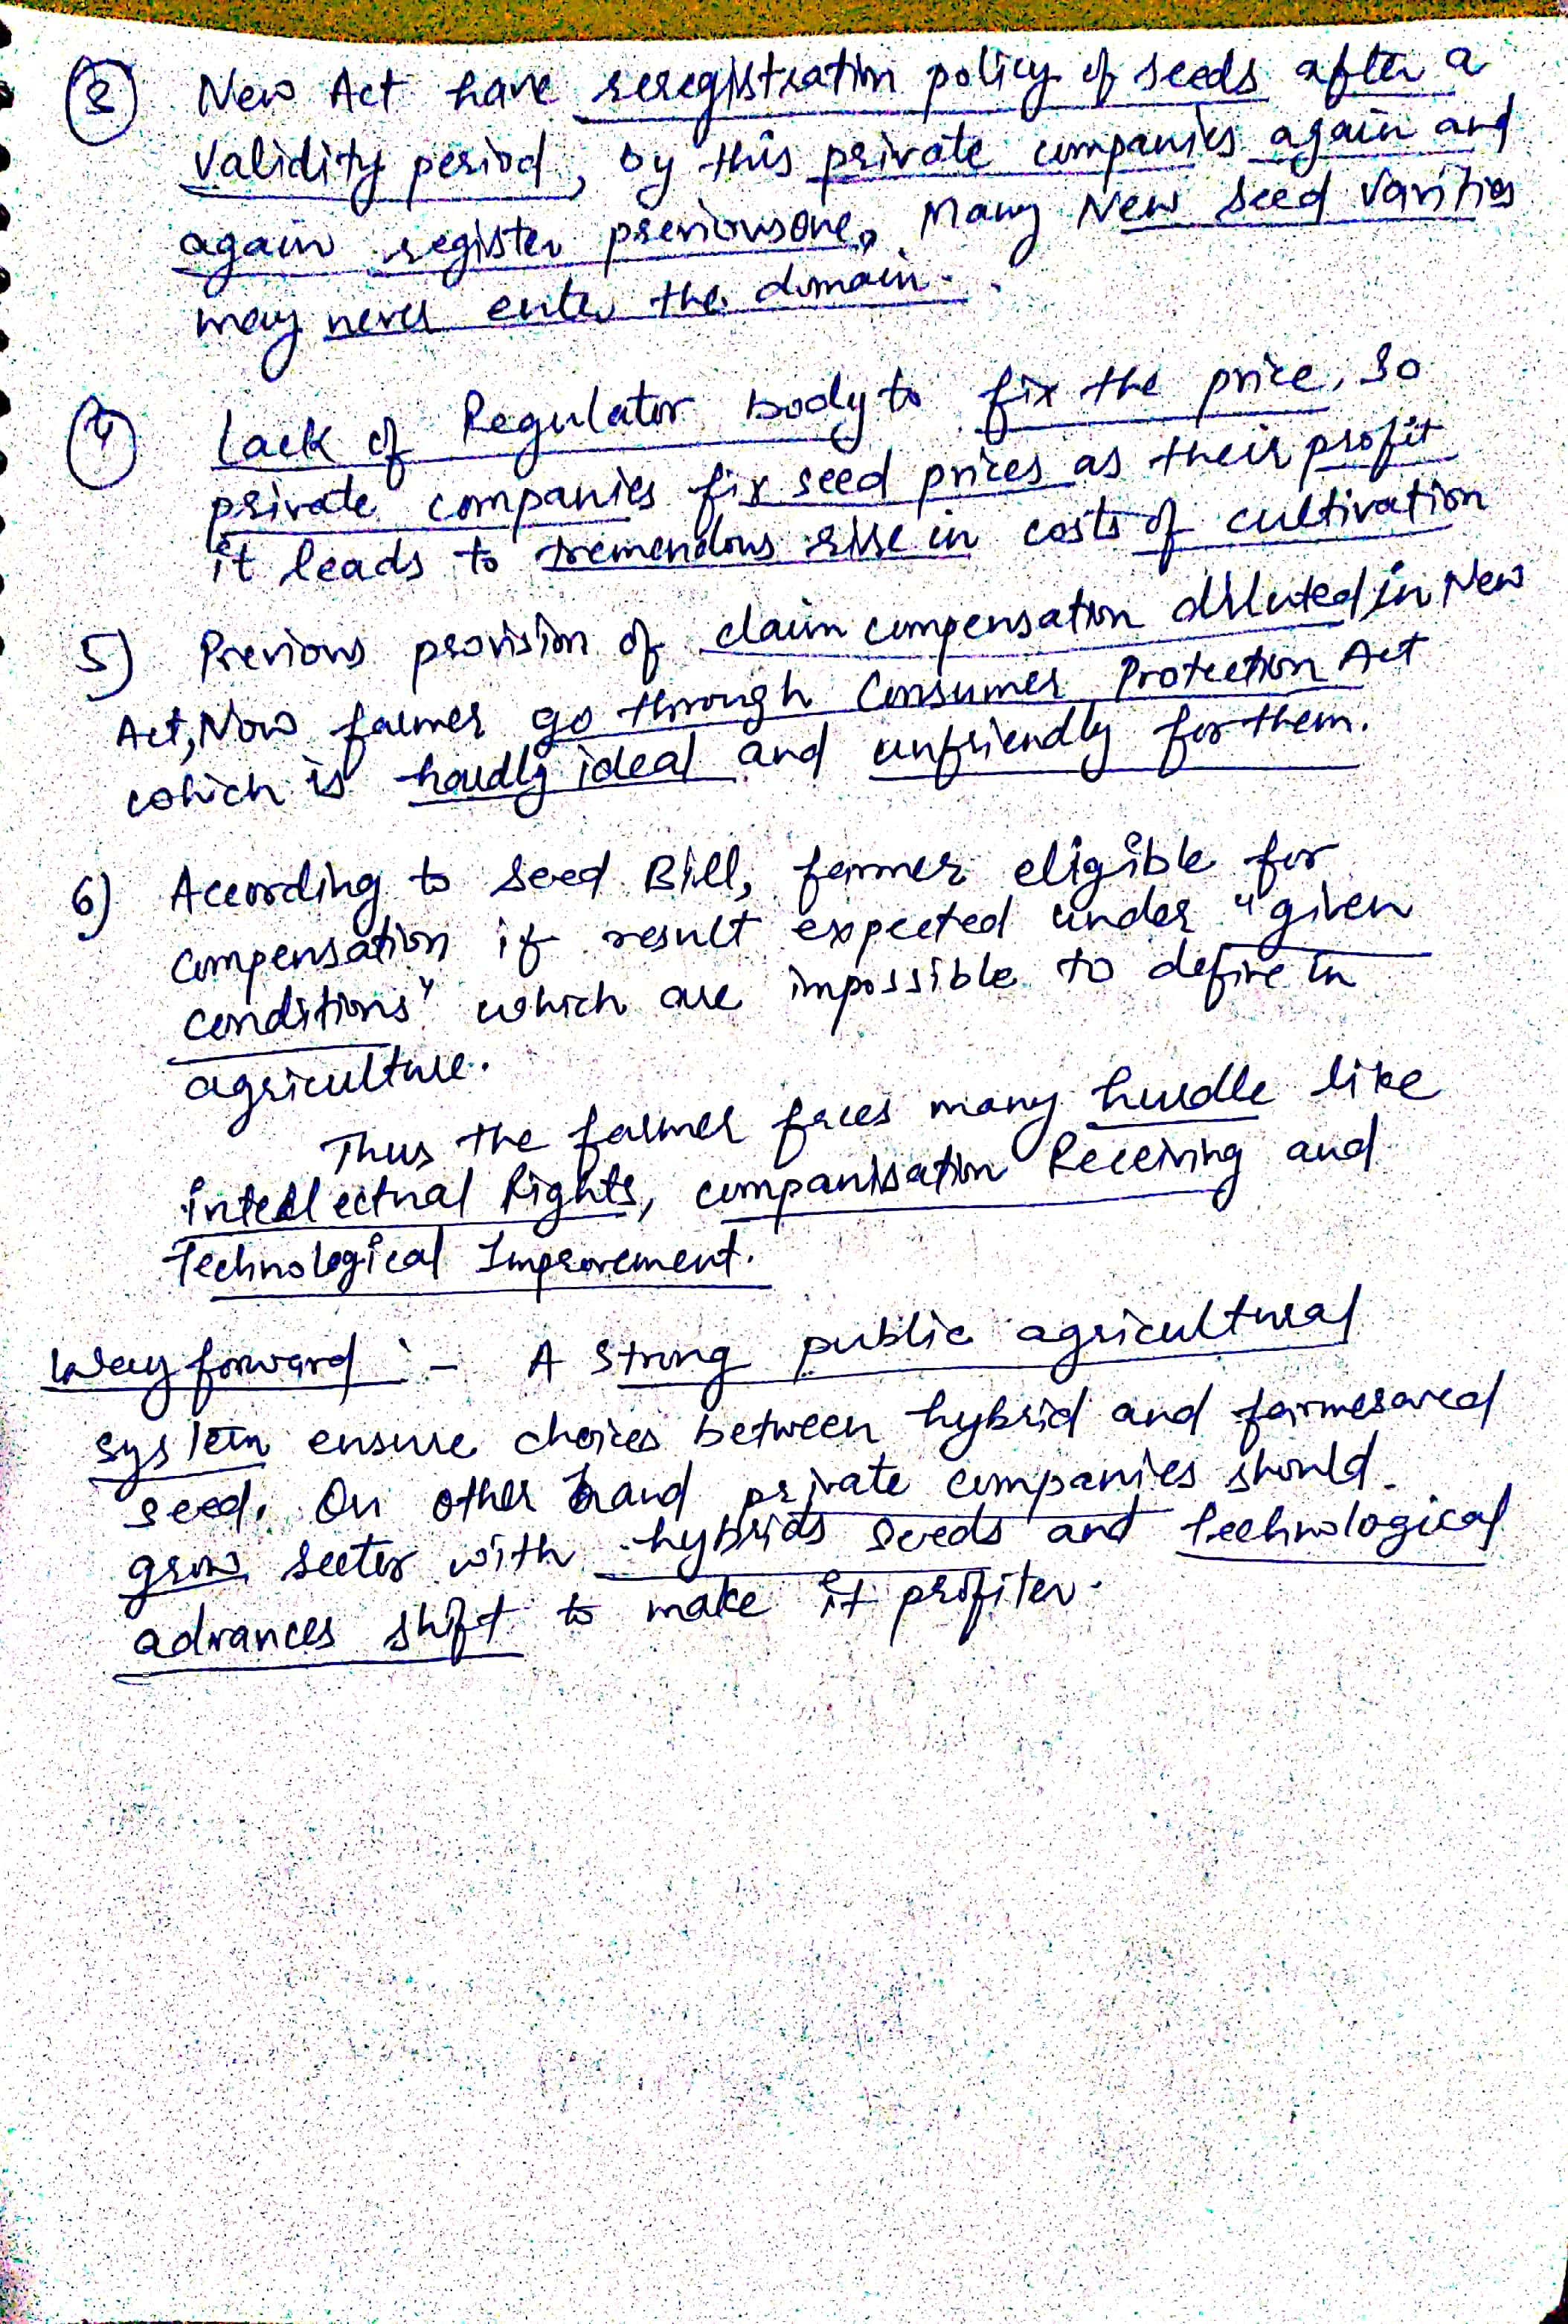 ③ New Act have reregistration policy of seeds after a
validity period, by this private companies again and
again register previousone, Many New Seed Varities
may never enter the domain.
④ Lack of Regulator body to fix the price, So
private companies fix seed prices as their profit
it leads to tremendous rise in costs of cultivation
5) Previous provision of claim compensation diluted in New
Act, Now farmer go through Consumer Protection Act
which is hardly ideal and unfriendly for them.
6) According to Seed Bill, farmer eligible for
compensation if result expected under "given
conditions" which are impossible to define in
agriculture.
Thus the farmer faces many hurdle like
intellectual Rights, companisation Receiving and
Technological Improvement.
Way forward :- A Strong public agricultural
system ensure choices between hybrid and farmesaved
seed. On other hand private companies should
grow sector with hybrids seeds and technological
advances shift to make it profiter.